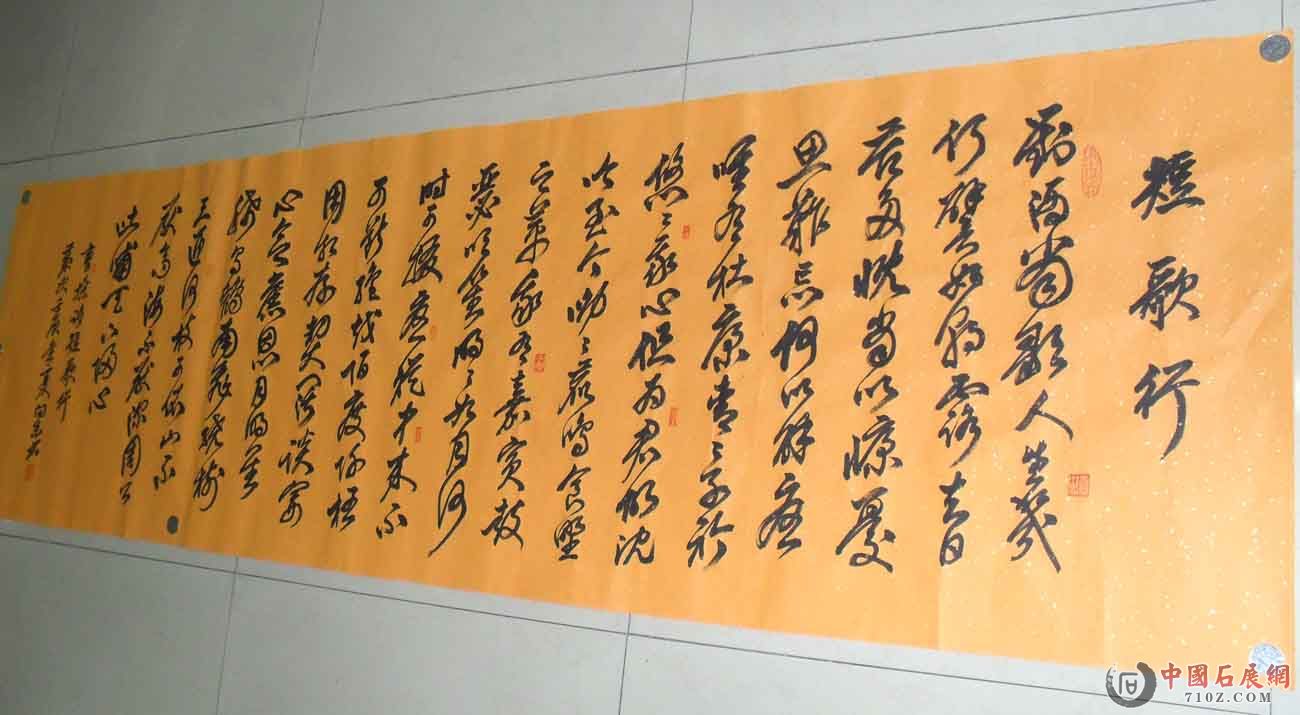 短歌行
對酒當歌人生幾
何譬如朝露去日
苦多慨當以慷憂
思難忘何以解憂
唯有杜康青〻子衿
悠〻我心但為君故沈
吟至今呦〻鹿鳴食野
之苹我有嘉賓鼓
瑟吹笙明〻如月何
時可掇憂從中來不
可斷絕越陌度阡枉
用相存契闊談宴
心念舊恩月明星
稀烏鵲南飛繞樹
三匝何枝可依山不
厭高海不厭深周公
吐哺天下歸心
曹操詩短歌行
歲次壬辰年夏
中國石展網
710Z.COM